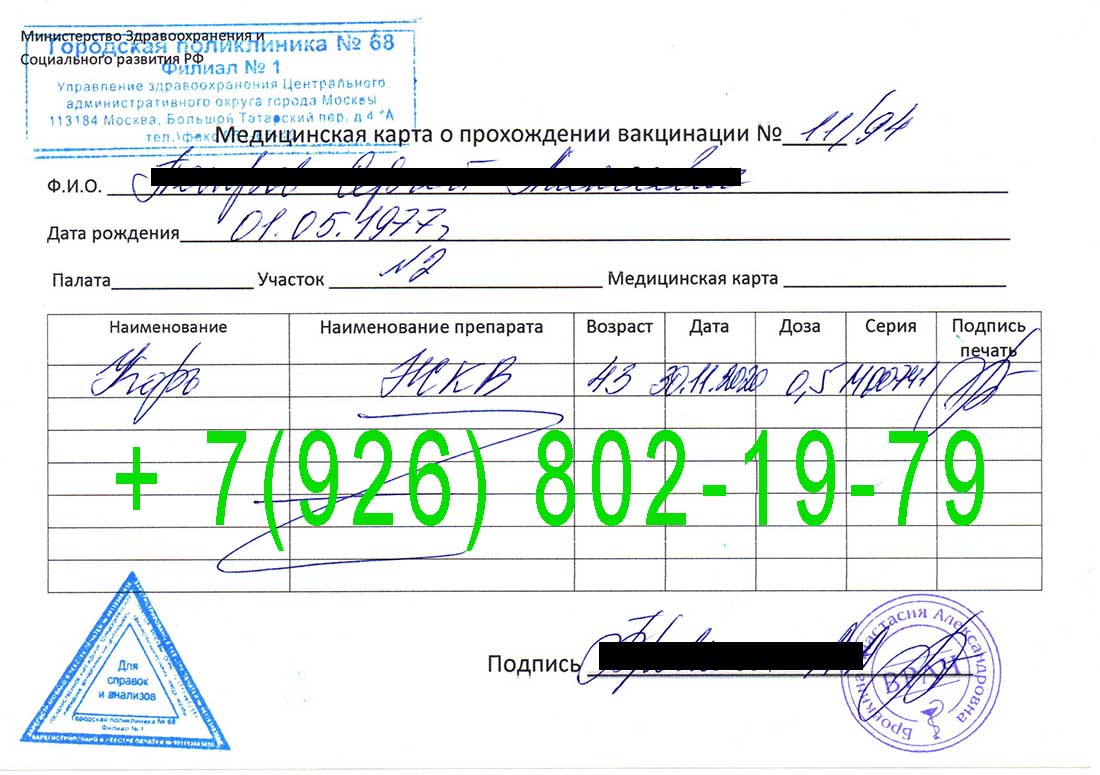 Министерство Здравоохранения и
Социального развития РФ
Городская поликлиника № 68
Филиал № 1
Управление здравоохранения Центрального
административного округа города Москвы
113184 Москва, Большой Татарский пер. д 4 "А
тел.\факс
Медицинская карта о прохождении вакцинации № 11/94
Ф.И.О.
Дата рождения 01.05.1977г
Палата Участок N2 Медицинская карта
Наименование Наименование препарата Возраст Дата Доза Серия Подпись печать
Корь ЖКВ 43 30.11.2020 0,5
+ 7(926) 802-19-79
Для
справок
и анализов
Городская поликлиника № 68
Филиал № 1
Подпись
Александровна
ВРАЧ